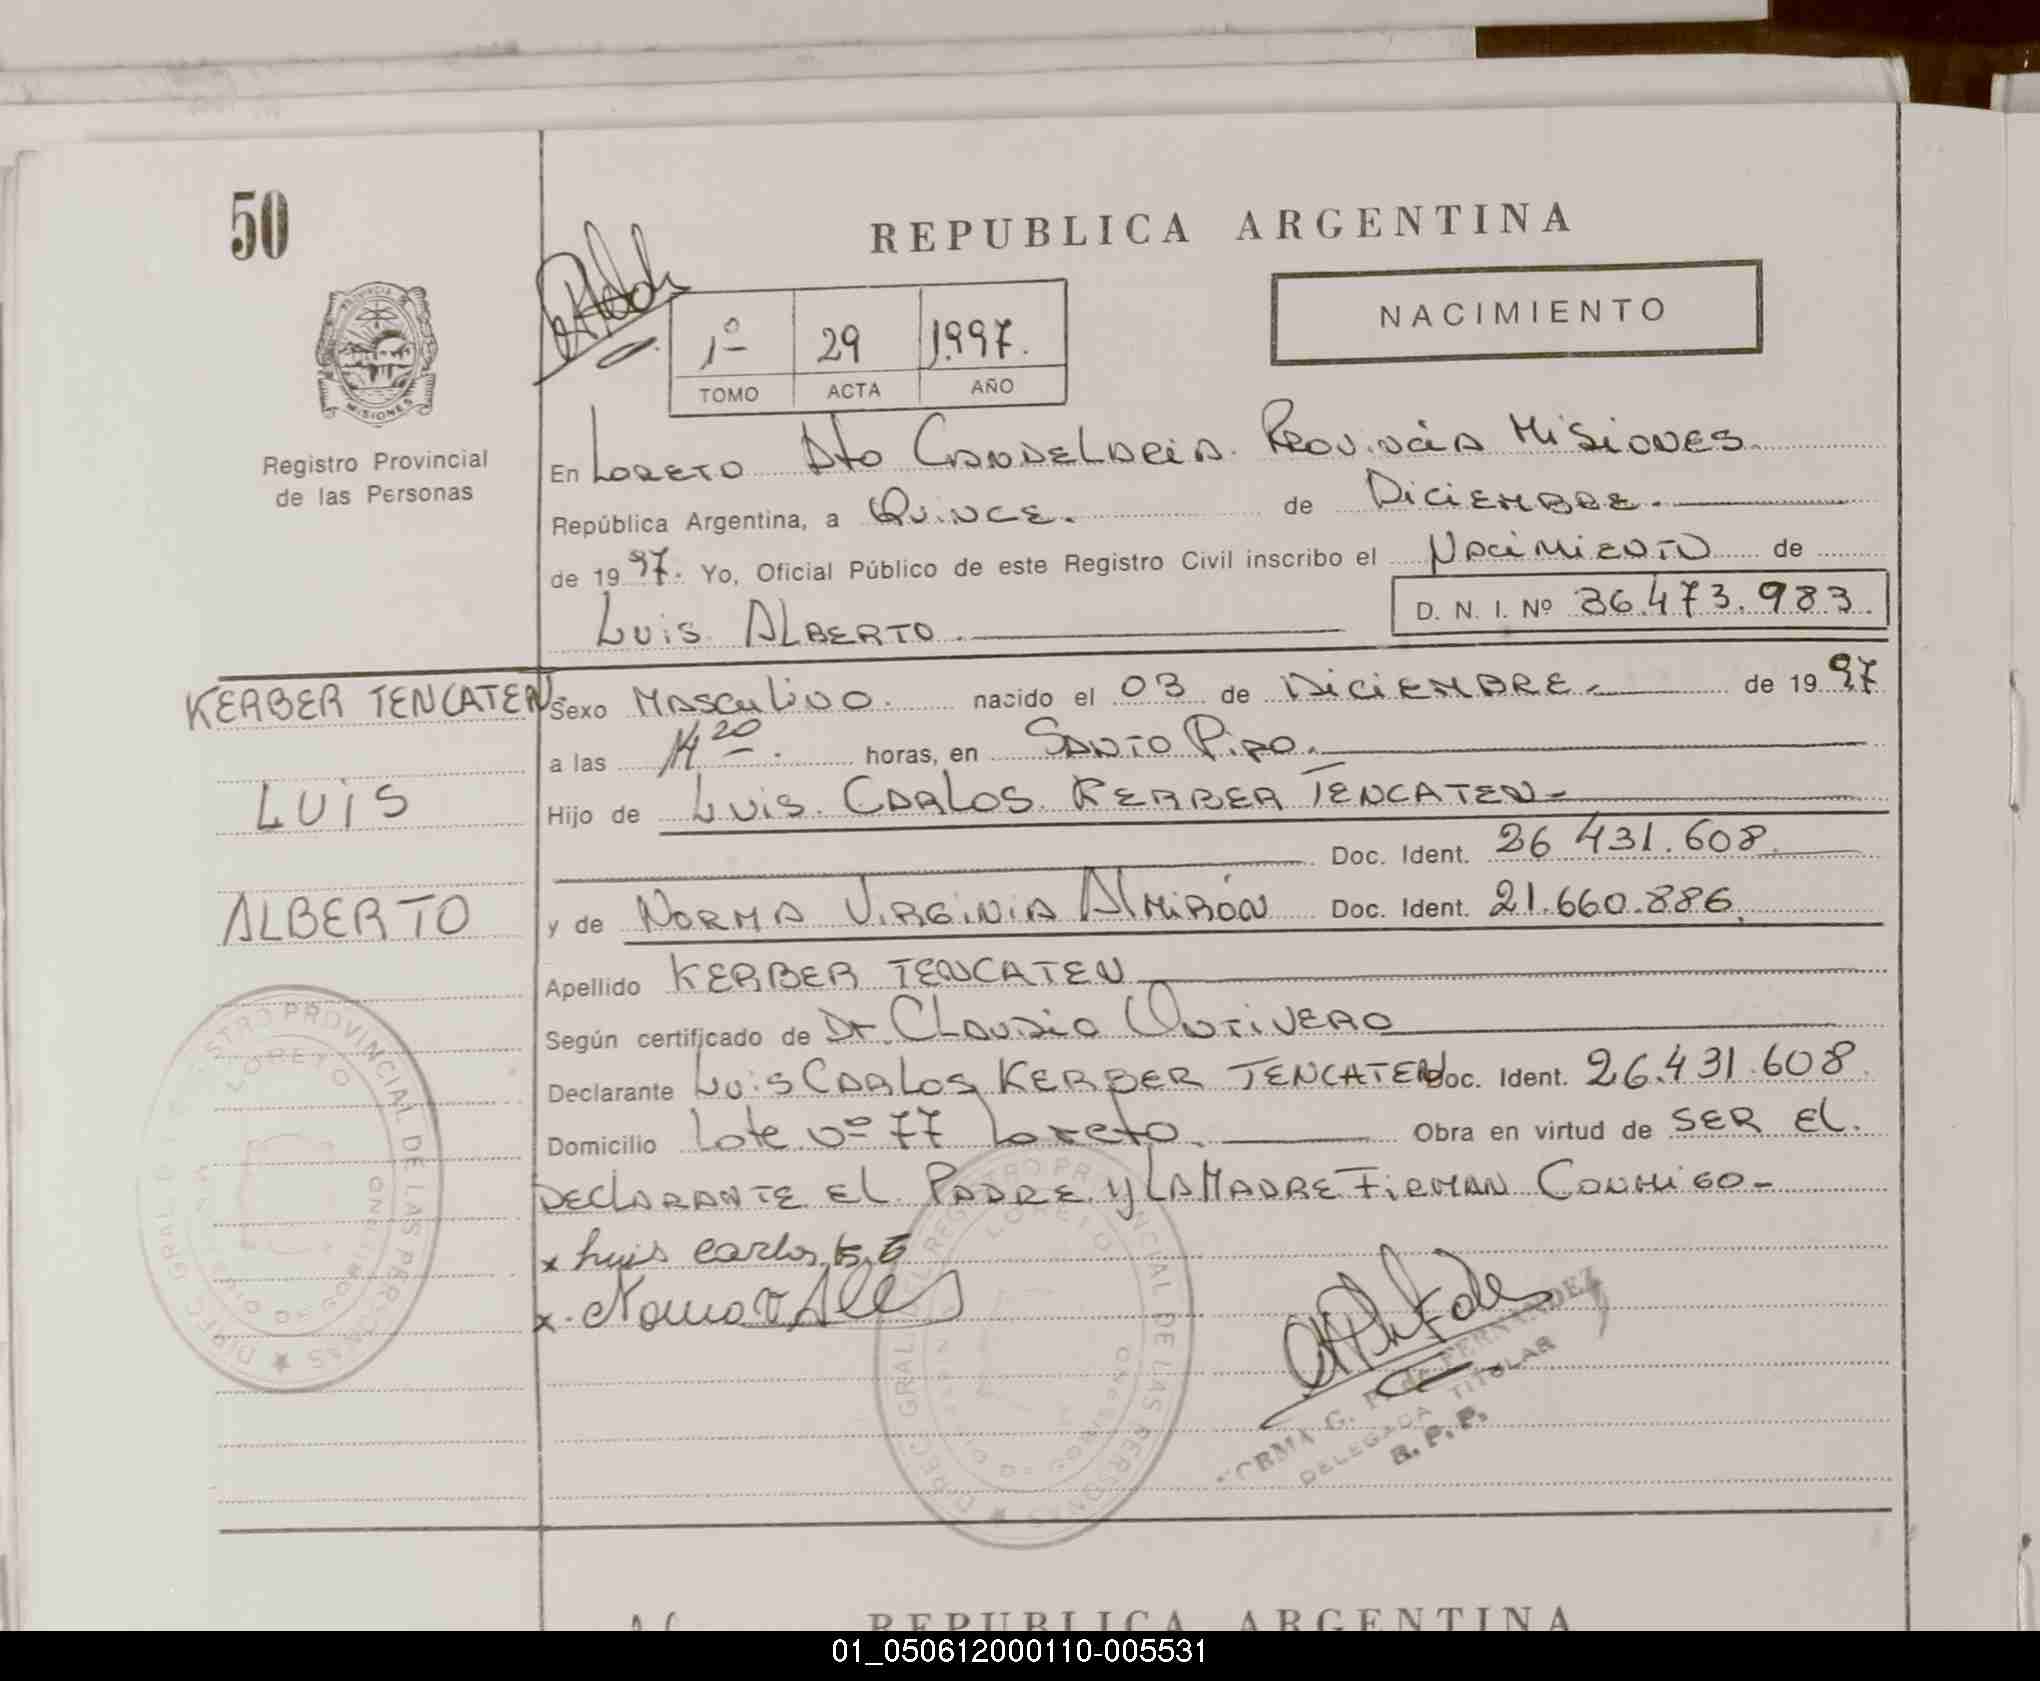 50
REPUBLICA ARGENTINA
NACIMIENTO
1º 29 1997.
TOMO ACTA AÑO
PROVINCIA DE
MISIONES
Registro Provincial
de las Personas
En LORETO Dto CANDELARIA. PROVINCIA MISIONES
República Argentina, a QUINCE. de DICIEMBRE.
de 1997. Yo, Oficial Público de este Registro Civil inscribo el NACIMIENTO de
LUIS ALBERTO. D. N. I. Nº 36.473.983.
KERBER TENCATEN
LUIS
ALBERTO
Sexo MASCULINO. nacido el 03 de DICIEMBRE. de 1997
a las 14 20. horas, en SANTO PIPO.
Hijo de LUIS CARLOS KERBER TENCATEN
Doc. Ident. 26 431.608.
y de NORMA VIRGINIA ALMIRÓN Doc. Ident. 21.660.886.
Apellido KERBER TENCATEN
Según certificado de Dr. CLAUDIO ONTIVERO
Declarante LUIS CARLOS KERBER TENCATEN Doc. Ident. 26.431.608.
Domicilio Lote nº 77 Loreto. Obra en virtud de SER EL.
DECLARANTE EL PADRE Y LA MADRE FIRMAN CONMIGO-
x Luis Carlos K. T
x. Norma V
DIREC. GRAL. DEL REGISTRO PROVINCIAL DE LAS PERSONAS
LORETO
DIREC. GRAL. DEL REGISTRO PROVINCIAL DE LAS PERSONAS
LORETO
NORMA G. de FERNANDEZ
DELEGADA TITULAR
R. P. P.
REPUBLICA ARGENTINA
01_050612000110-005531